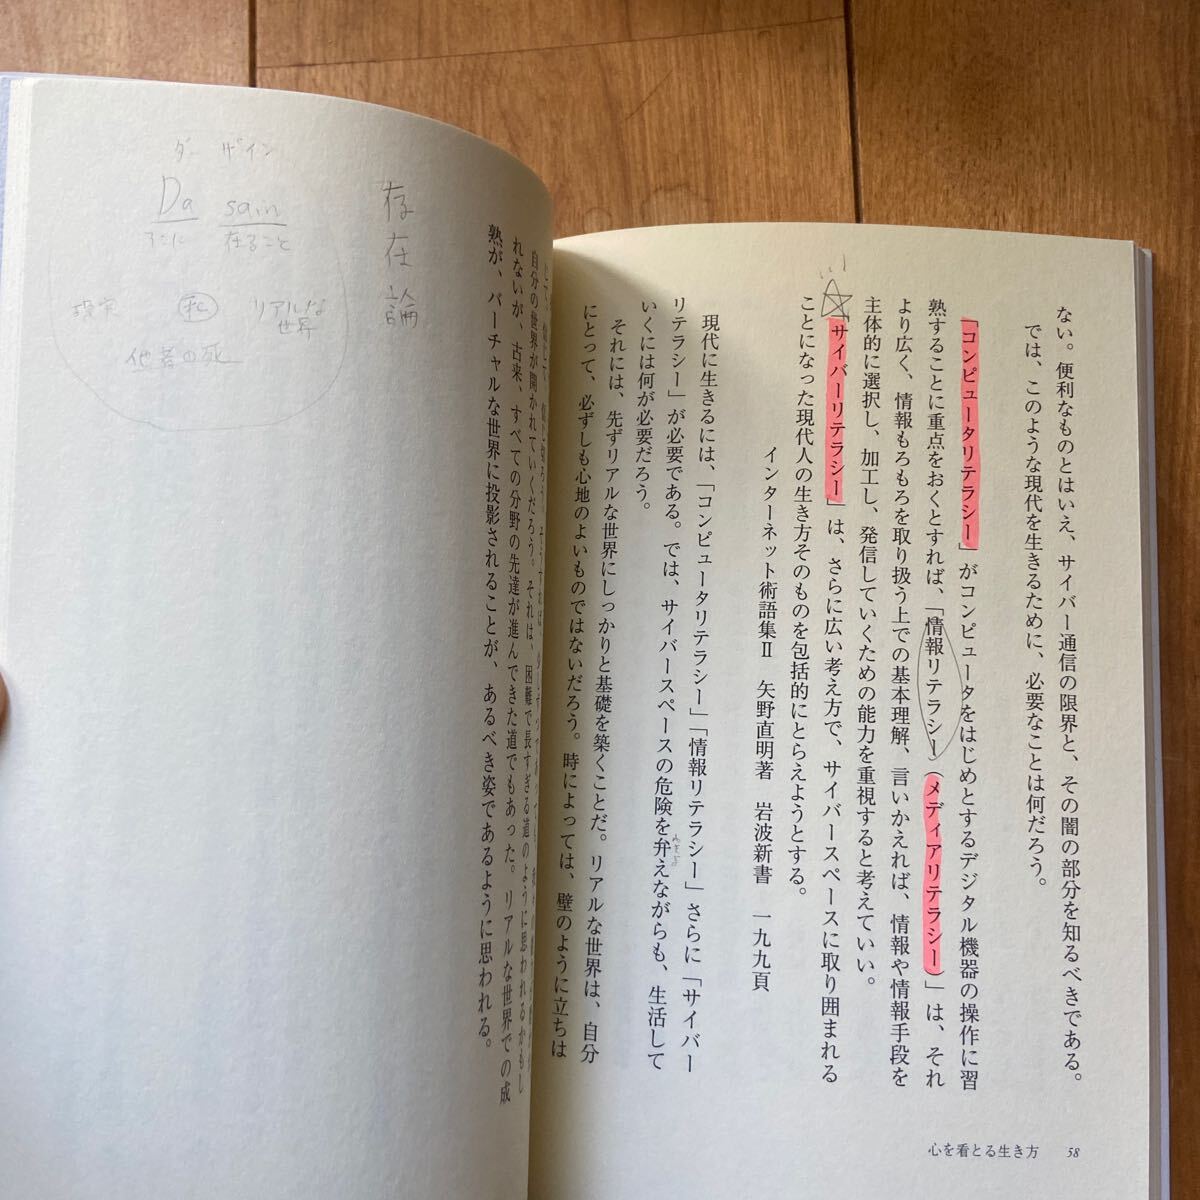 ない。便利なものとはいえ、サイバー通信の限界と、その闇の部分を知るべきである。
では、このような現代を生きるために、必要なことは何だろう。
「コンピュータリテラシー」がコンピュータをはじめとするデジタル機器の操作に習
熟することに重点をおくとすれば、「情報リテラシー(メディアリテラシー)」は、それ
より広く、情報もろもろを取り扱う上での基本理解、言いかえれば、情報や情報手段を
主体的に選択し、加工し、発信していくための能力を重視すると考えていい。
「サイバーリテラシー」は、さらに広い考え方で、サイバースペースに取り囲まれる
ことになった現代人の生き方そのものを包括的にとらえようとする。
インターネット術語集Ⅱ 矢野直明著 岩波新書 一九九頁
現代に生きるには、「コンピュータリテラシー」「情報リテラシー」さらに「サイバー
リテラシー」が必要である。では、サイバースペースの危険を弁えながらも、生活して
いくには何が必要だろう。
それには、先ずリアルな世界にしっかりと基礎を築くことだ。リアルな世界は、自分
にとって、必ずしも心地のよいものではないだろう。時によっては、壁のように立ちは
心を看とる生き方 58
自分の世界が開かれていくだろう。それは、困難で長すぎる道のように思われるかもし
れないが、古来、すべての分野の先達が進んできた道でもあった。リアルな世界での成
熟が、バーチャルな世界に投影されることが、あるべき姿であるように思われる。
存在論
ダー ザイン
Da sain
そこに 在ること
私 リアルな
世界
他者の死